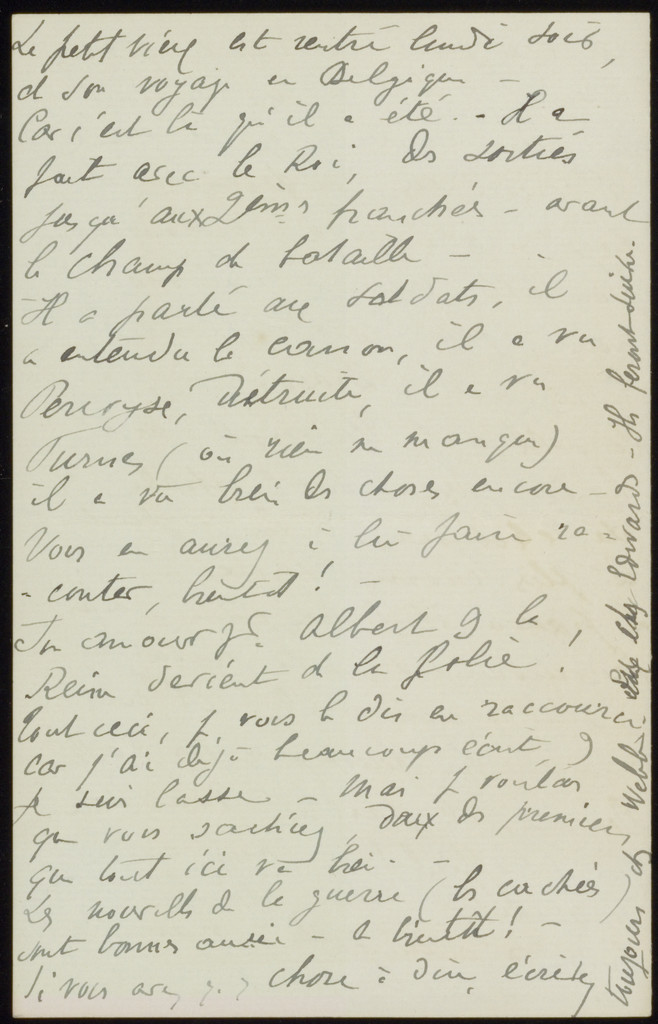 Le petit vieux est rentré lundi soir,
de son voyage en Belgique -
Car c'est là qu'il a été. - Il a
fait avec le Roi, des sorties
jusqu'aux 2èmes tranchées - avant
le champ de bataille -
Il a parlé aux soldats, il
a entendu le canon, il a vu
Pervyse, détruite, il a vu
Furnes (où rien ne manque)
il a vu bien des choses encore -
Vous en aurez à lui faire ra-
-conter, bientôt! -
Son amour pr. Albert & la
Reine devient de la folie!
Tout ceci, je vous le dis en raccourci
car j'ai déjà beaucoup écrit, &
je suis lasse - Mais je voulais
que vous sachiez, des premiers
que tout ici va bien - -
Les nouvelles de la guerre (les cachées)
sont bonnes aussi - à bientôt! -
Si vous avez chose à dire, écrivez
toujours chez Webb. chez Edwards - Ils feront suivre.